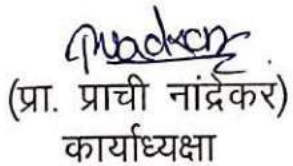 (प्रा. प्राची नांद्रेकर)
कार्याध्यक्षा